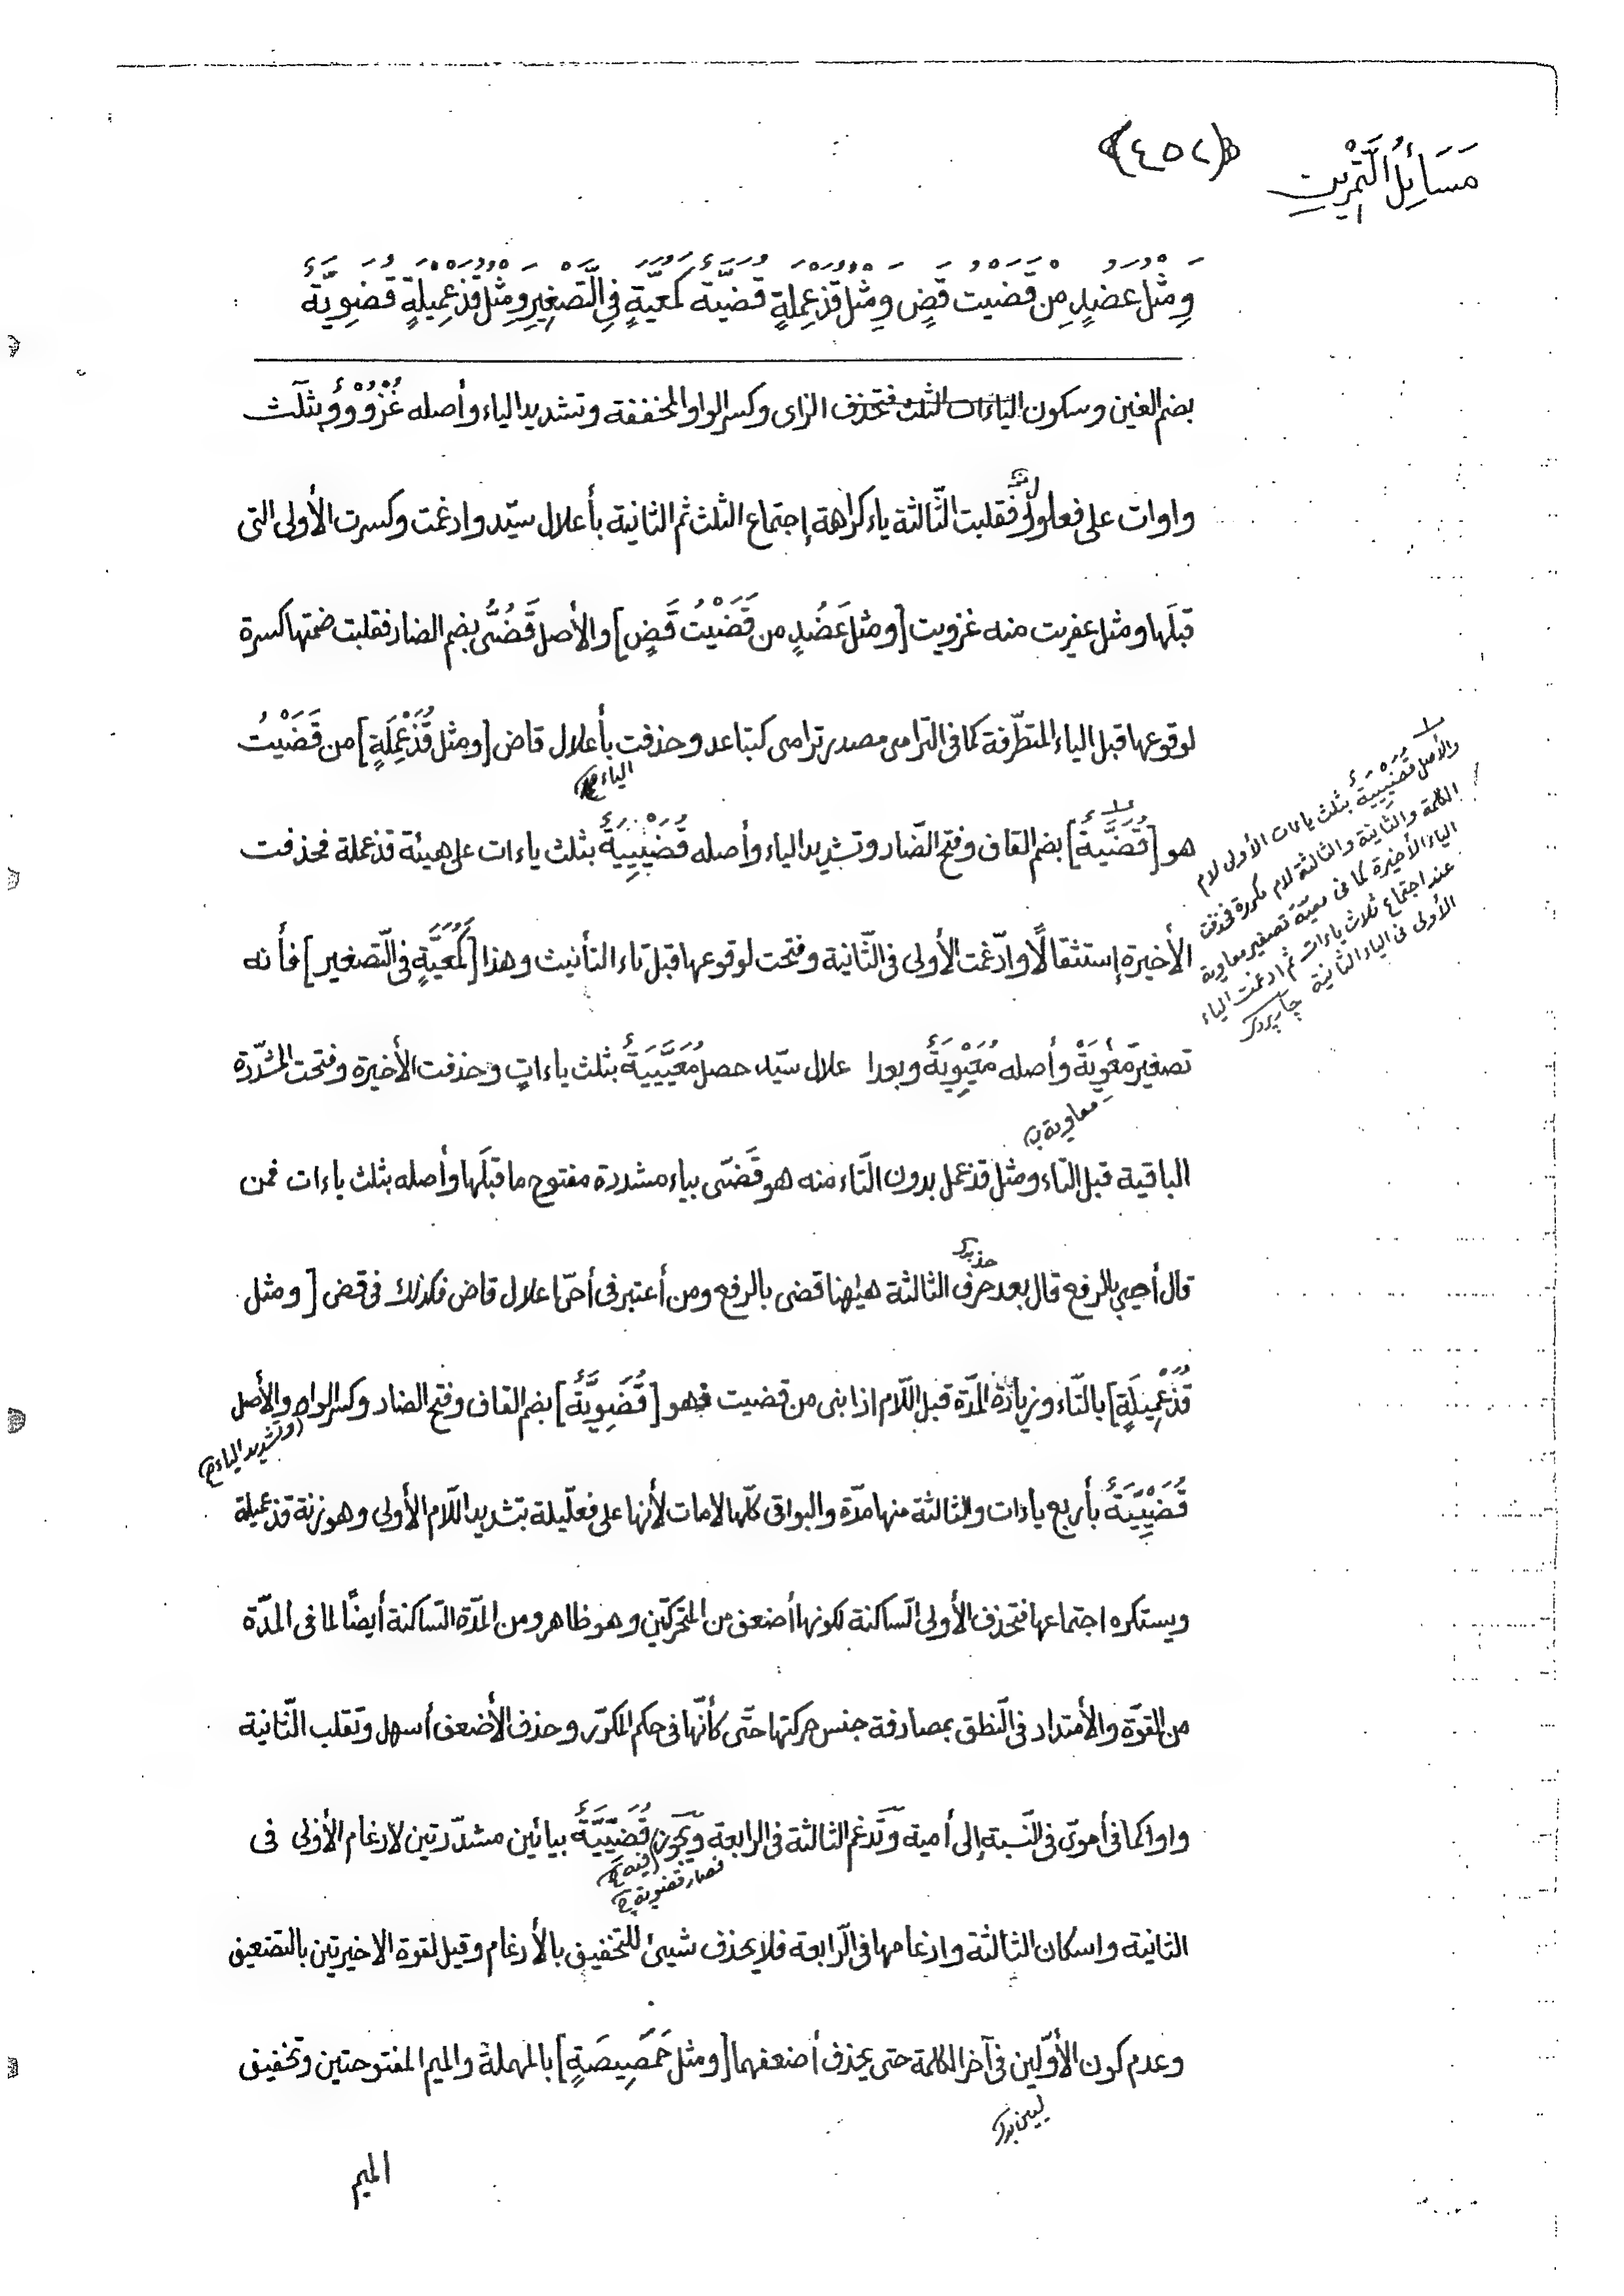 مَسَائِلُ التَّمْرِينِ
﴿٤٥٢﴾
وَمِثْلُ عَضُدٍ مِنْ قَضَيْتُ قَضٍ وَمِثْلُ قُذَعْمِلَةٍ قُضَيَّةٌ كَمُعَيَّةٍ فِي التَّصْغِيرِ وَمِثْلُ قُذَعْمِيلَةٍ قُضَوِيَّةٌ
بضم الغين وسكون الزاى وكسر الواو المخففة وتشديد الياء وأصله غُزْوُوْوٌ بثلث
واوات على فعلول فقلبت الثّالثة ياء كراهة إجتماع الثلث ثم الثانية بأعلال سيّد وادغمت وكسرت الأولى التى
قبلَها ومثل عفريت منه غزويت [ومثل عَضُدٍ من قَضَيْتُ قَضٍ] والأصل قَضُىٌ بضم الضاد فقلبت ضمتها كسرة
لوقوعها قبل الياء المتطّرفة كما فى التّرامى مصدر ترامى كتباعد وحذفت بأعلال قاض [ومثل قُذَعْمِلَةٍ] من قَضَيْتُ
الياء
هو [قُضَيَّةٌ] بضم القاف وفتح الضّاد وتشديد الياء وأصله قُضَيْيِيَةٌ بثلث ياءات على هيئة قذعملة فحذفت
الأخيرة إستثقالًا وادّغمت الأولى فى الثّانية وفتحت لوقوعها قبل تاء التأنيث وهذا [كَمُعَيَّةٍ فى التّصغير] فأنه
تصغير مَعْوِيَةٌ وأصله مُعَيْوِيَةٌ وبعد ا علال سيّد، حصل مُعَيَّيَةٌ بثلث ياءاتٍ وحذفت الأخيرة وفتحت المشدّدة
معاوية
الباقية قبل التّاء ومثل قذعمل بدون التّاء منه هو قُضَىّ بياء مشددة مفتوح ما قبلَها وأصله بثلث ياءات فمن
قال أحيى بالرفع قال بعد حرف الثالثة هيٰهنا قضى بالرفع ومن أعتبر فى أحىّ اعلال قاض فكذلك فى قض [ومثل
قُذَعْمِيلَةٍ] بالتّاء وزيادة المدّة قبل اللّام اذا بنى من قضيت فهو [قُضَوِيَّةٌ] بضم القاف وفتح الضاد وكسر الواو والأصل
(وتشديد الياء
قُضَيْيِيْيَةٌ بأربع ياءات والثالثة منها مدّة والبواقى كلّها لامات لأنها على فعلّيلة بتشديد اللّام الأولى وهو زنة قذعميلة
ويستكره اجتماعها فتحذف الأولى السّاكنة لكونها أضعف من المتحركتين وهو ظاهر ومن المدّة السّاكنة أيضًا لما فى المدّة
من القوّة والأمتداد فى النّطق بمصادفة جنس حركتها حتّى كأنّها فى حكم المكرّر وحذف الأضعف أسهل وتقلب الثّانية
واوا كما فى أموىّ فى النّسبة إلى أمية وتدغم الثالثة فى الرابعة ويجوز قُضَيِّيَّةٌ بيائين مشدّدتين لادغام الأولى فى
فيه
فصار قضوية
الثانية واسكان الثالثة وادغامها فى الرّابعة فلا يحذف شيئ للتخفيف بالأدغام وقيل لقوة الاخيرتين بالتضعيف
وعدم كون الأوّلين فى آخر الكلمة حتى يحذف أضعفهما [ومثل حَمَصِيصَةٍ] بالمهملة والميم المفتوحتين وتخفيف
الميم
والأصل قضييية بثلث ياءات الأولى لام
الكلمة والثانية والثالثة لام مكررة فحذفت
الياء الأخيرة كما فى معيّة تصغير معاوية
عند اجتماع ثلاث ياءات ثم ادغمت الياء
الأولى فى الياء الثانية